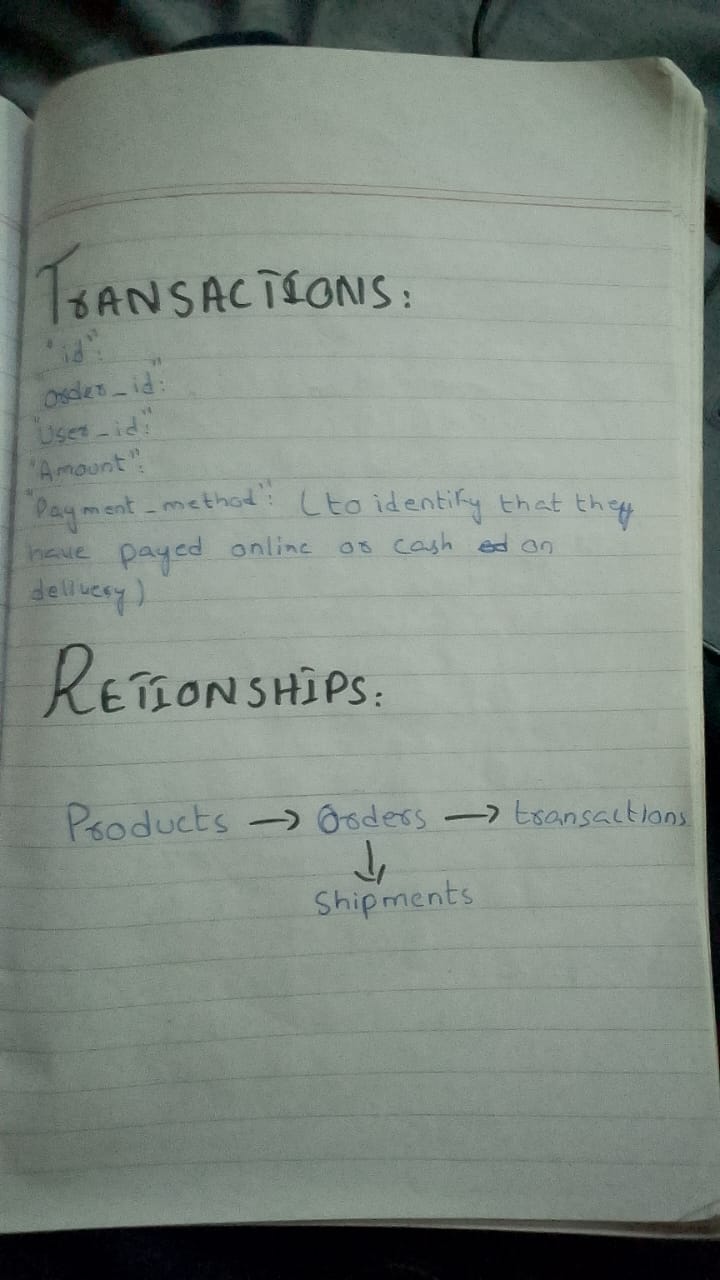 TRANSACTIONS:
"id":
"order_id":
"User_id":
"Amount":
"Payment_method": (to identify that they
have payed online or cash on
delivery)
RETIONSHIPS:
Products → Orders → transactions
↓
Shipments